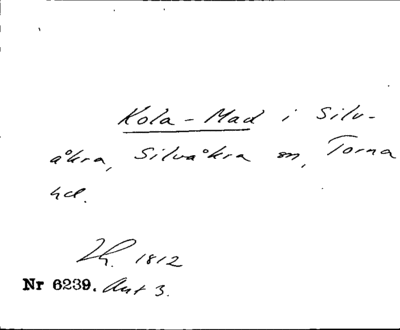 Kola - Mad i Silv-
åkra, Silvåkra sn, Torna
hd.
1812
Nr 6239. Akt 3.